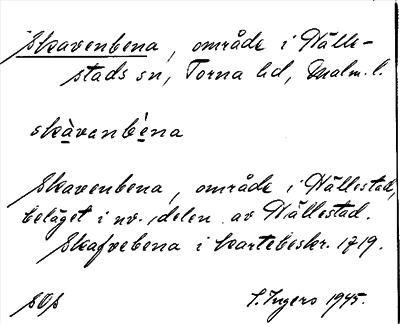 Skavenbena, område i Hälle-
stads sn, Torna hd, Malm. l.
skàvanbèna
Skavenbena, område i Hällestad,
beläget i nv. delen av Hällestad.
Skafvebena i kartebeskr. 1719.
S. Ingers 1945.